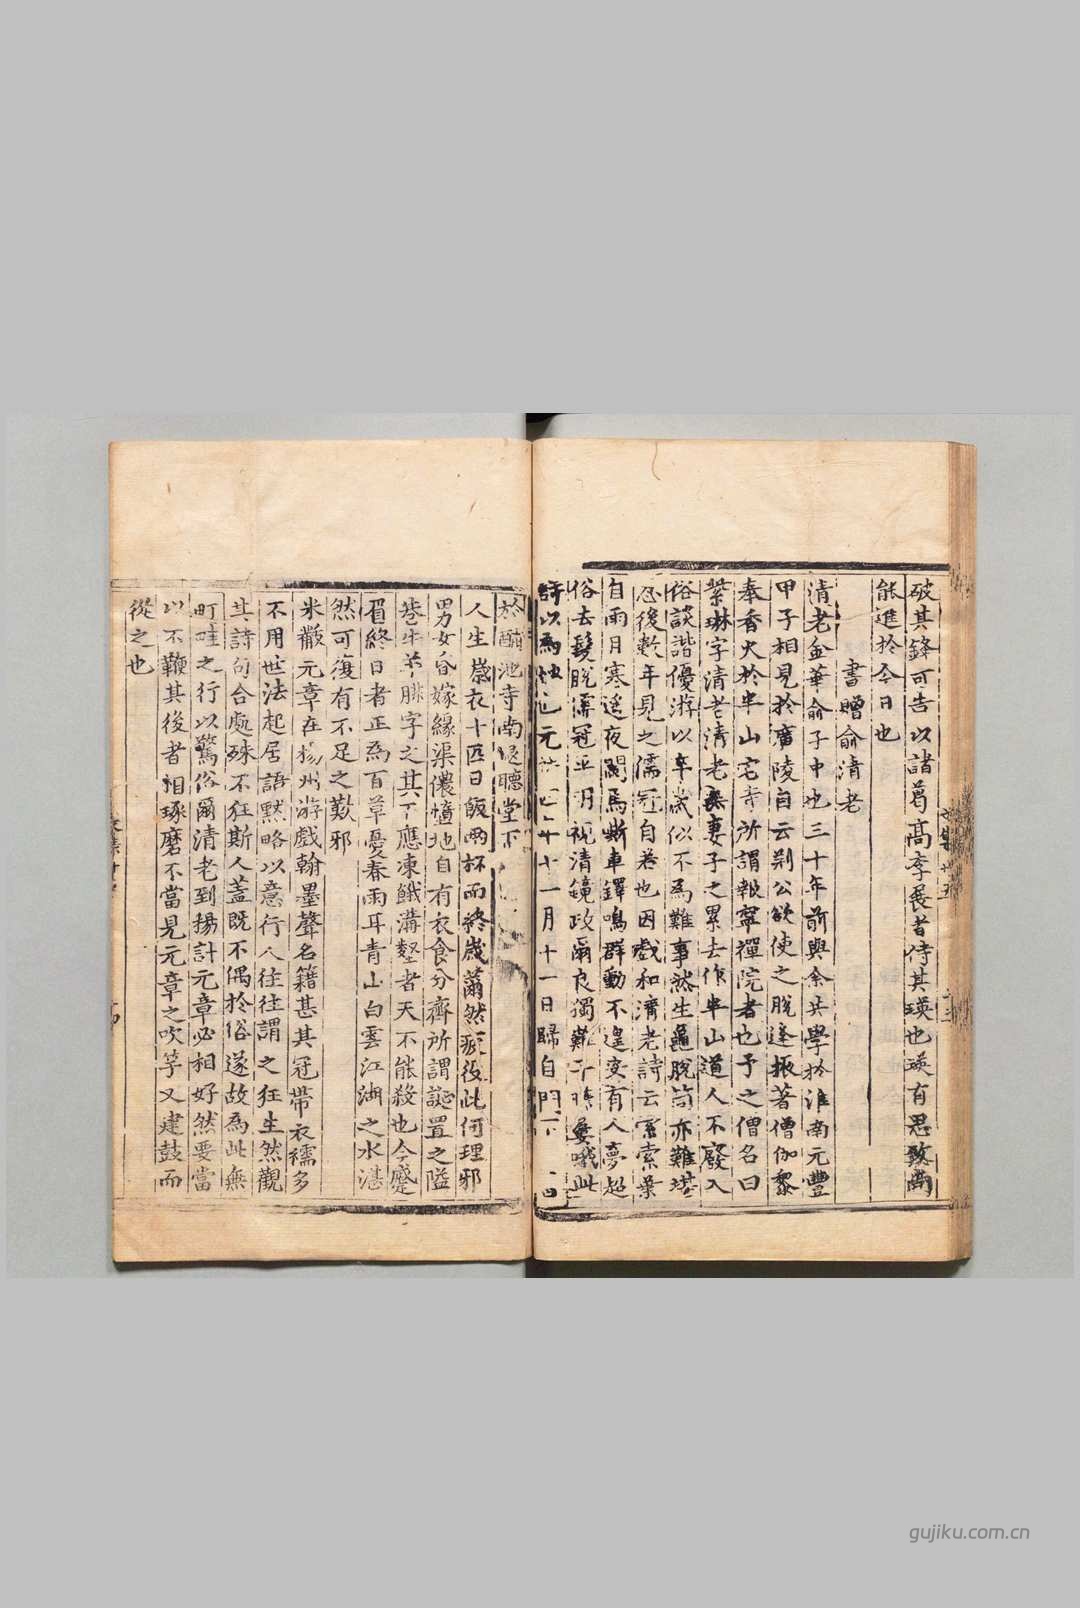 破其鋒可告以諸葛高李展昔侍其瑛也瑛有思致尚
能進於今日也
書贈俞清老
清老金華俞子中也三十年前與余共學於淮南元豐
甲子相見於廣陵自云荊公欲使之脫逢掖著僧伽黎
奉香火於半山宅寺所謂報寧禪院者也予之僧名曰
紫琳字清老清老無妻子之累去作半山道人不廢入
俗談諧優游以卒歲似不為難事然生龜脫筒亦難堪
忍後數年見之儒冠自若也因戲和清老詩云索索葉
自雨月寒遙夜闌馬嘶車鐸鳴群動不遑安有人夢超
俗去髮脫儒冠平明視清鏡政爾良獨難
詩以為 元 十一月十一日歸自門下
於酺池寺南退聽堂下
人生歲衣十匹日飯兩杯而終歲薾然疲役此何理邪
男女昏嫁緣渠儂墮地自有衣食分齊所謂誕置之隘
巷牛羊腓字之其不應凍餓溝壑者天不能殺也今蹙
眉終日者正為百草憂春雨耳青山白雲江湖之水湛
然可復有不足之歎邪
米黻元章在揚州游戲翰墨聲名籍甚其冠帶衣襦多
不用世法起居語默略以意行人往往謂之狂生然觀
其詩句合處殊不狂斯人蓋既不偶於俗遂故為此無
町畦之行以驚俗爾清老到揚計元章必相好然要當
以不鞭其後者相琢磨不當見元章之吹竽又建鼓而
從之也
gujiku.com.cn